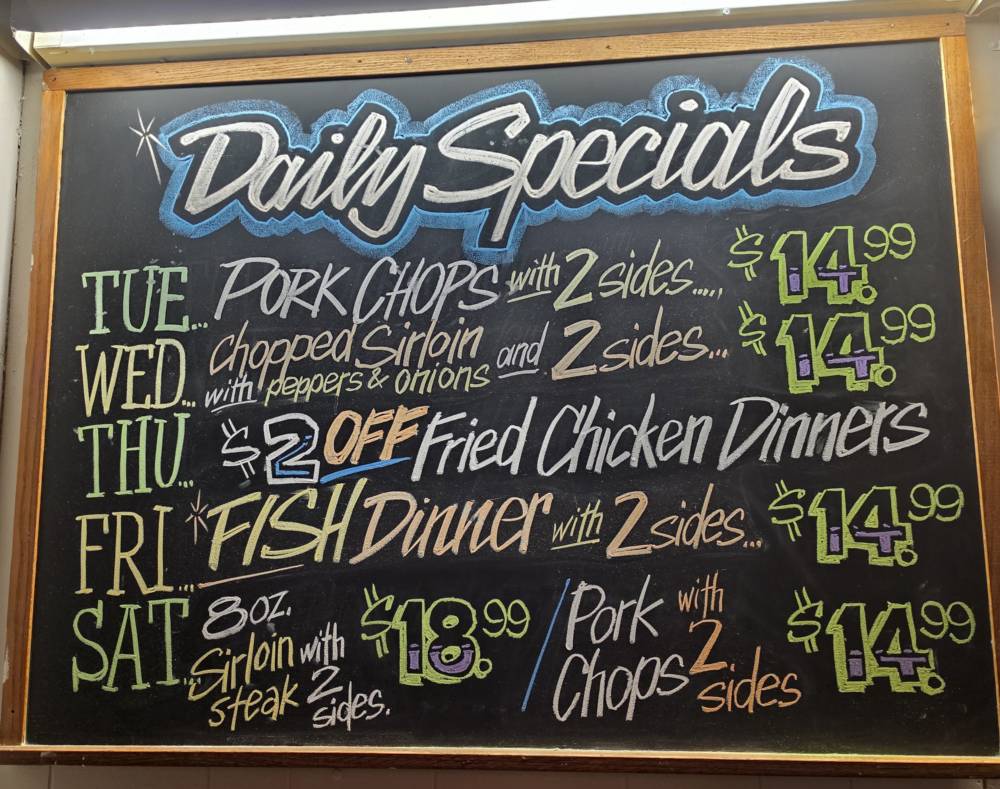 Daily Specials
TUE... PORK CHOPS with 2 sides..... $14.99
WED... Chopped Sirloin with peppers & onions and 2 sides... $14.99
THU... $2 OFF Fried Chicken Dinners
FRI... FISH Dinner with 2 sides... $14.99
SAT... 8oz. Sirloin steak with 2 sides. $18.99 / Pork Chops with 2 sides $14.99